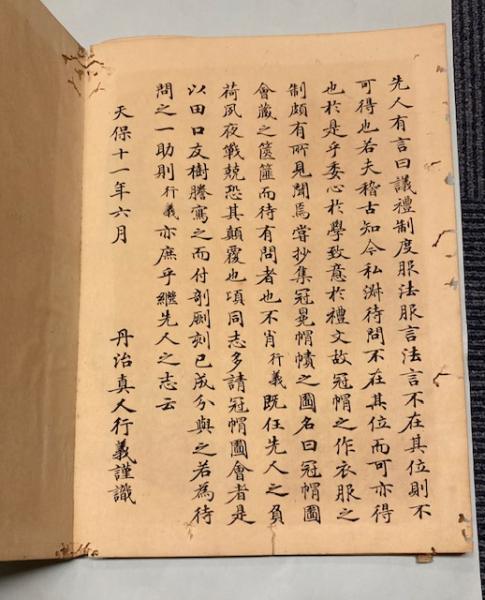 先人有言曰議禮制度服法服言法言不在其位則不
可得也若夫稽古知今私淑待問不在其位而可亦得
也於是乎委心於學致意於禮文故冠帽之作衣服之
制頗有所見聞焉嘗抄集冠冕帽幘之圖名曰冠帽圖
會藏之篋簏而待有問者也不肖行義既任先人之負
荷夙夜戰兢恐其顛覆也頃同志多請冠帽圖會者是
以田口友樹謄寫之而付剞劂刻已成分與之若為待
問之一助則行義亦庶乎繼先人之志云
天保十一年六月 丹治真人行義謹識